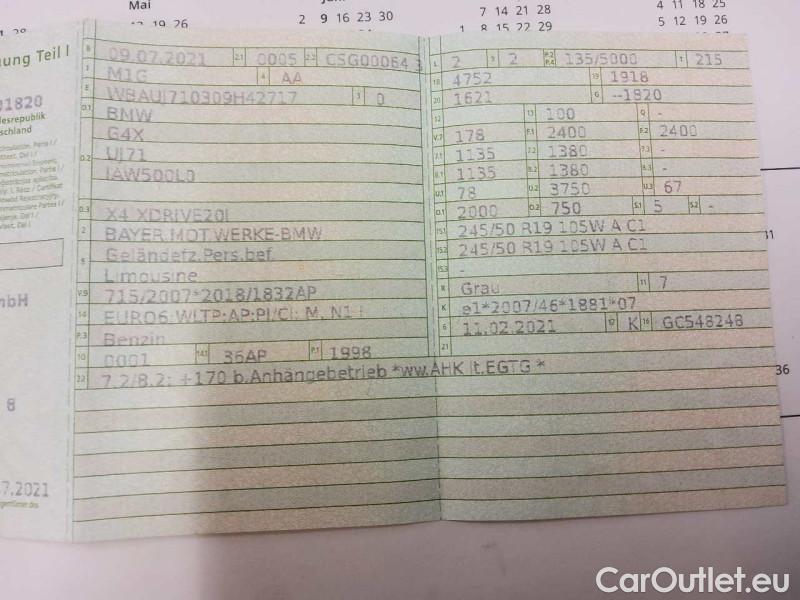 Mai
12 19 26
2 9 16 23 30
7 14 21 28
1 8 15 22 29
4 11 18 25
5 12 19 26
ung Teil I
B 09.07.2021 2.1 0005 2.2 CSG00064 3
J M1G 4 AA
E WBAUJ710309H42717 3 0
D.1 BMW
G4X
D.2 UJ71
IAW500L0
D.3 X4 XDRIVE20I
2 BAYER.MOT.WERKE-BMW
5 Geländefz.Pers.bef.
Limousine
V.9 715/2007*2018/1832AP
14 EURO6;WLTP;AP;PI/CI; M, N1 I
P.3 Benzin
10 0001 14.1 36AP P.1 1998
22 7.2/8.2: +170 b.Anhängebetrieb *ww.AHK lt.EGTG *
L 2 9 2 P.2 P.4 135/5000 T 215
18 4752 19 1918
20 1621 G --1820
12 13 100 Q -
V.7 178 F.1 2400 F.2 2400
7.1 1135 7.2 1380 7.3 -
8.1 1135 8.2 1380 8.3 -
U.1 78 U.2 3750 U.3 67
O.1 2000 O.2 750 S.1 5 S.2 -
15.1 245/50 R19 105W A C1
15.2 245/50 R19 105W A C1
15.3 -
R Grau 11 7
K e1*2007/46*1881*07
6 11.02.2021 17 K 16 GC548248
21
01820
desrepublik
tschland
mbH
8
.7.2021
31
36
CarOutlet.eu